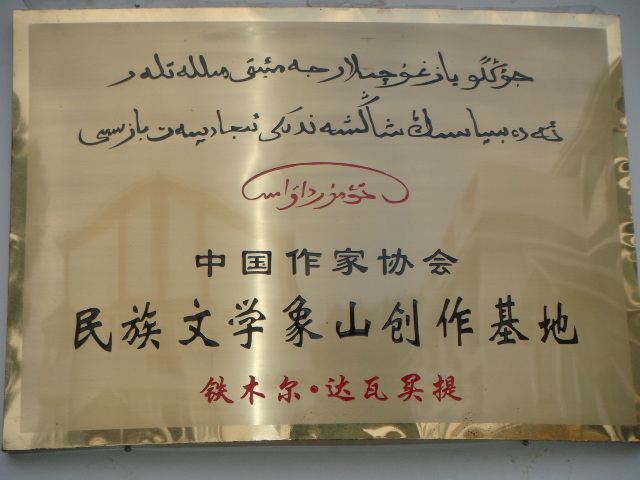 جۇڭگو يازغۇچىلار جەمئىيىتى مىللەتلەر
ئەدەبىياتىنىڭ شاڭشەندىكى ئىجادىيەت بازىسى
تۆمۈر داۋامەت
中国作家协会
民族文学象山创作基地
铁木尔·达瓦买提